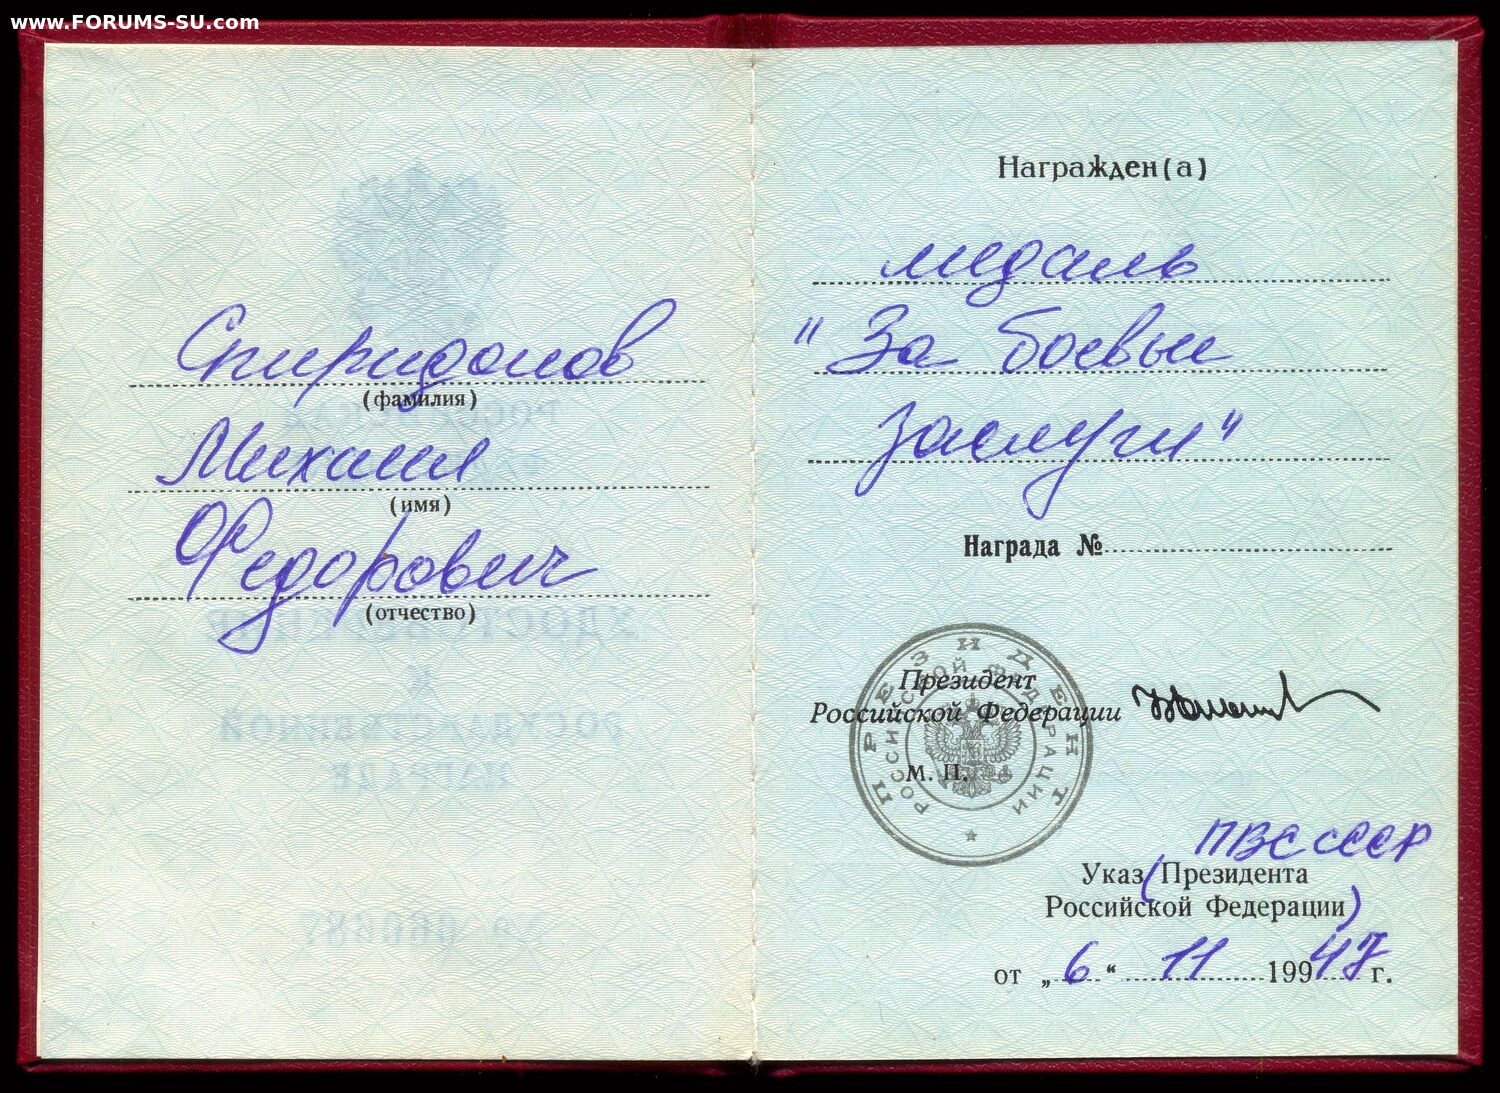 www.FORUMS-SU.com
Спиридонов
(фамилия)
Михаил
(имя)
Федорович
(отчество)
Награжден(а)
медаль
"За боевые
заслуги"
Награда №
ПРЕЗИДЕНТ
РОССИЙСКОЙ ФЕДЕРАЦИИ
Президент
Российской Федерации
М. П.
ПВС СССР
Указ (Президента
Российской Федерации)
от „6“ 11 19947 г.